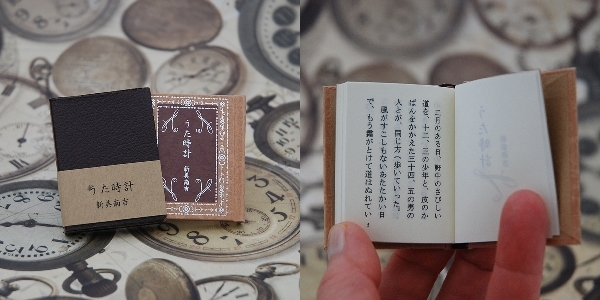 うた時計
新美南吉
うた時計
新美南吉
二月のある日、野中のさびしい
道を、十二、三の少年と、皮のか
ばんをかかえた三十四、五の男の
人とが、同じ方へ歩いていった。
風がすこしもないあたたかい日
で、もう霜がとけて道はぬれてい
うた時計